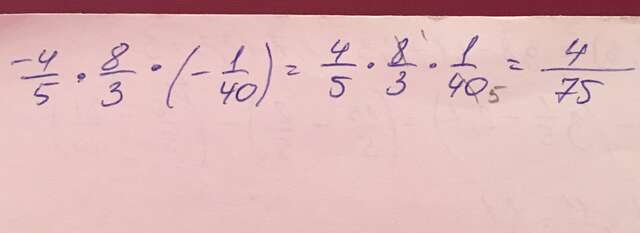 -4/5 · 8/3 · (-1/40) = 4/5 · 8/3 1 · 1/40 5 = 4/75